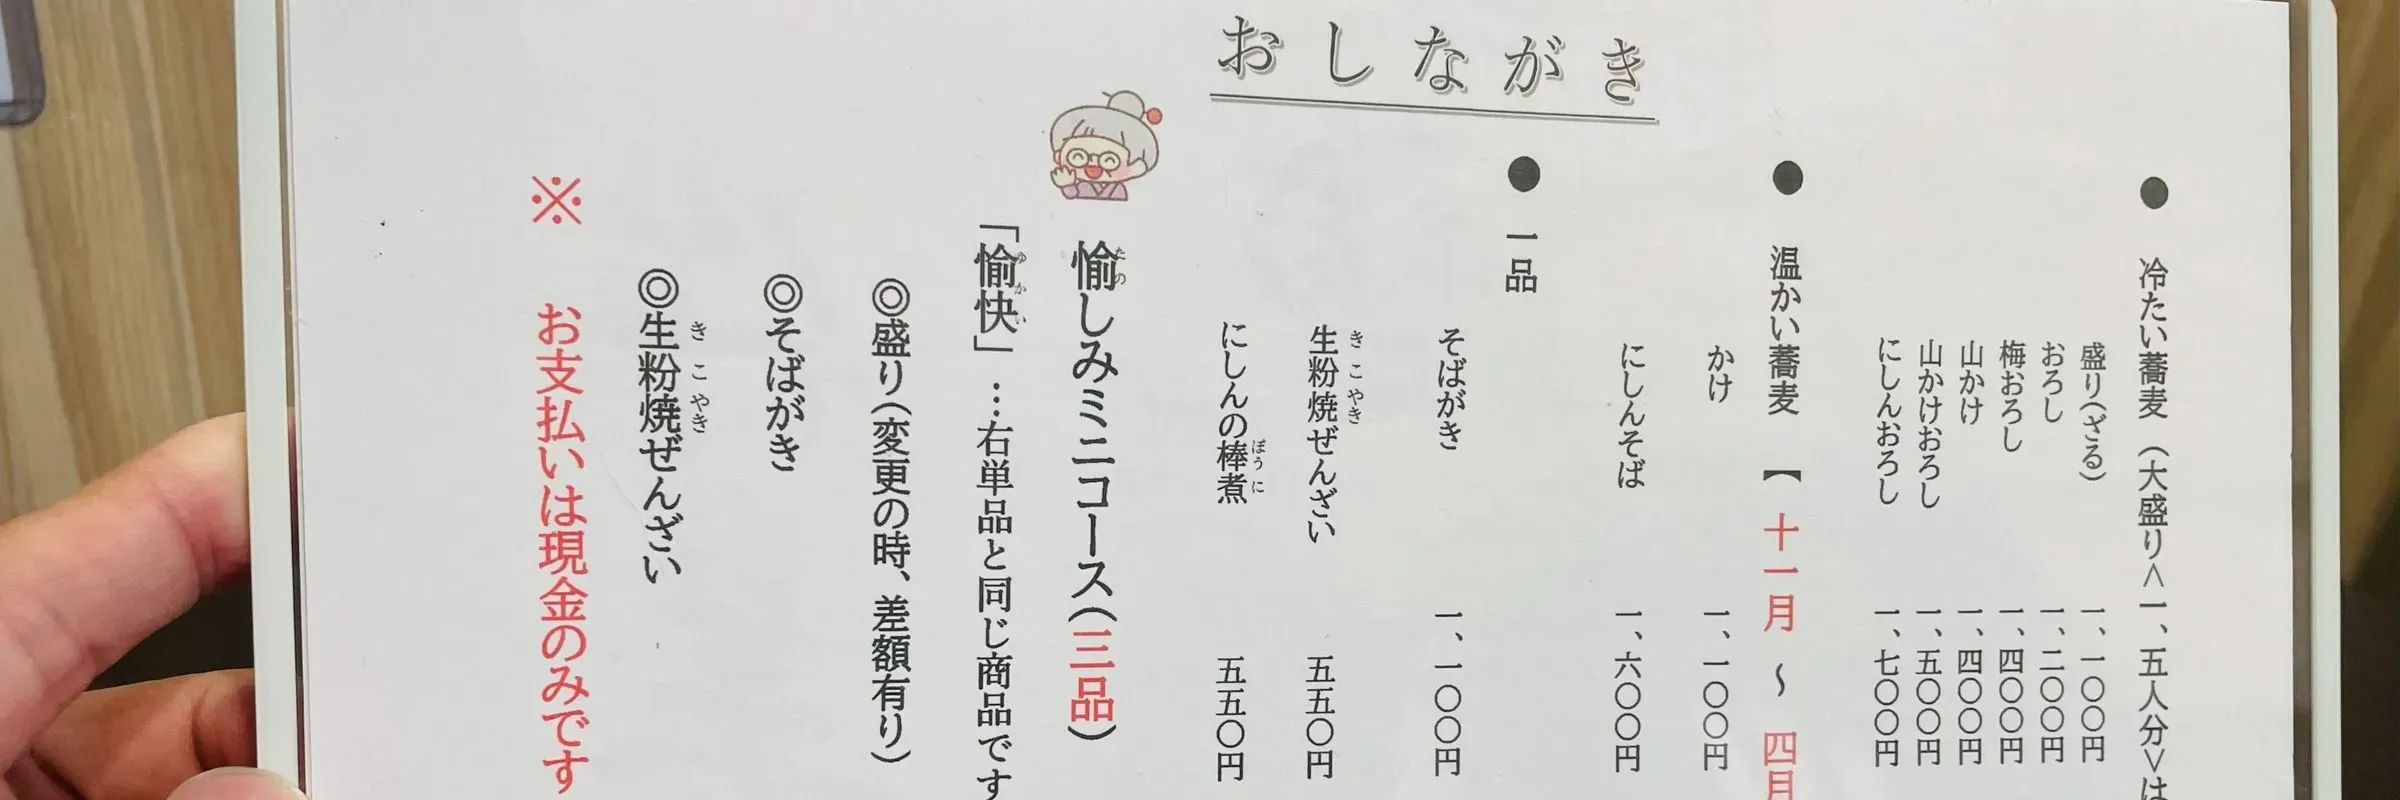 おしながき
● 冷たい蕎麦 (大盛り<一、五人分>は
盛り(ざる) 一、一〇〇円
おろし 一、二〇〇円
梅おろし 一、四〇〇円
山かけ 一、四〇〇円
山かけおろし 一、五〇〇円
にしんおろし 一、七〇〇円
● 温かい蕎麦 【 十一月 ~ 四月
かけ 一、一〇〇円
にしんそば 一、六〇〇円
● 一品
そばがき 一、一〇〇円
生粉焼ぜんざい 五五〇円
きこやき
にしんの棒煮 五五〇円
ぼうに
愉しみミニコース(三品)
たの
「愉快」…右単品と同じ商品です
ゆかい
◎盛り(変更の時、差額有り)
◎そばがき
◎生粉焼ぜんざい
きこやき
※ お支払いは現金のみです